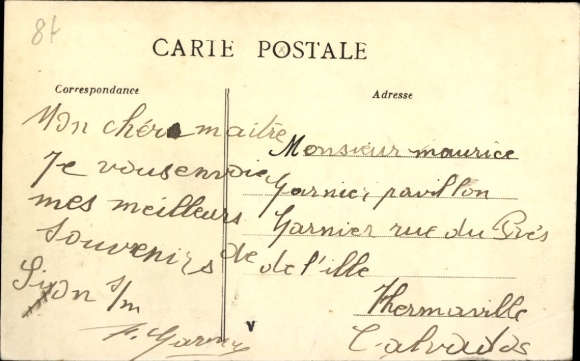 8f
CARTE POSTALE
Correspondance
Adresse
Mon chère maitre
Je vous envoie
mes meilleurs
souvenirs de
Lyon s/m
Monsieur maurice
Garnier pavillon
Garnier rue du Prés
de l'ille
Thermaville
Calvados
V